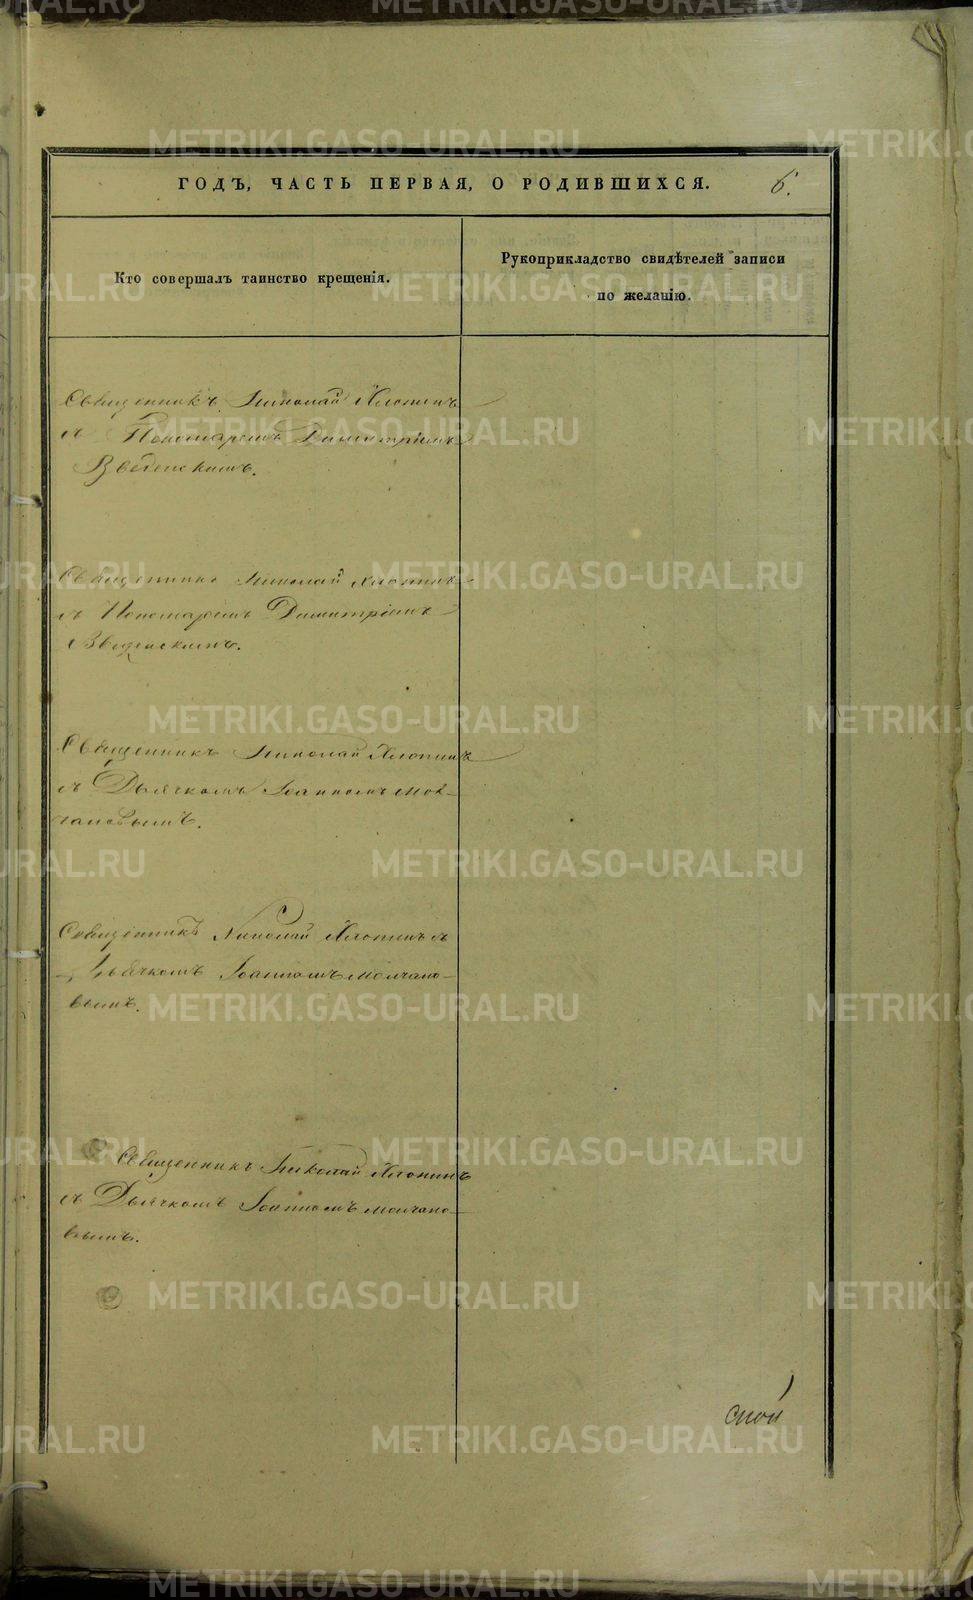 ГОДЪ, ЧАСТЬ ПЕРВАЯ, О РОДИВШИХСЯ. 6.
Кто совершалъ таинство крещенія.
Рукоприкладство свидѣтелей записи
по желанію.
Священникъ Николай Хлопинъ
съ Пономаремъ Димитріемъ
Введенскимъ.
Священникъ Николай Хлопинъ
съ Пономаремъ Димитріемъ
Введенскимъ.
Священникъ Николай Хлопинъ
съ Дьячкомъ Іоанномъ Мол-
чановымъ.
Священникъ Николай Хлопинъ съ
Дьячкомъ Іоанномъ Молчано-
вымъ.
Священникъ Николай Хлопинъ
съ Дьячкомъ Іоанномъ Молчано-
вымъ.
METRIKI.GASO-URAL.RU